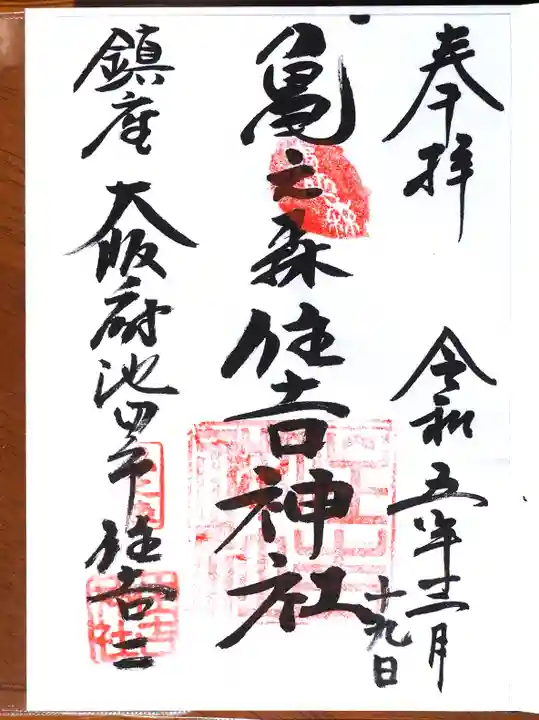 奉拝
令和五年十二月
十九日
亀之森住吉神社
鎮座 大阪府池田市住吉二